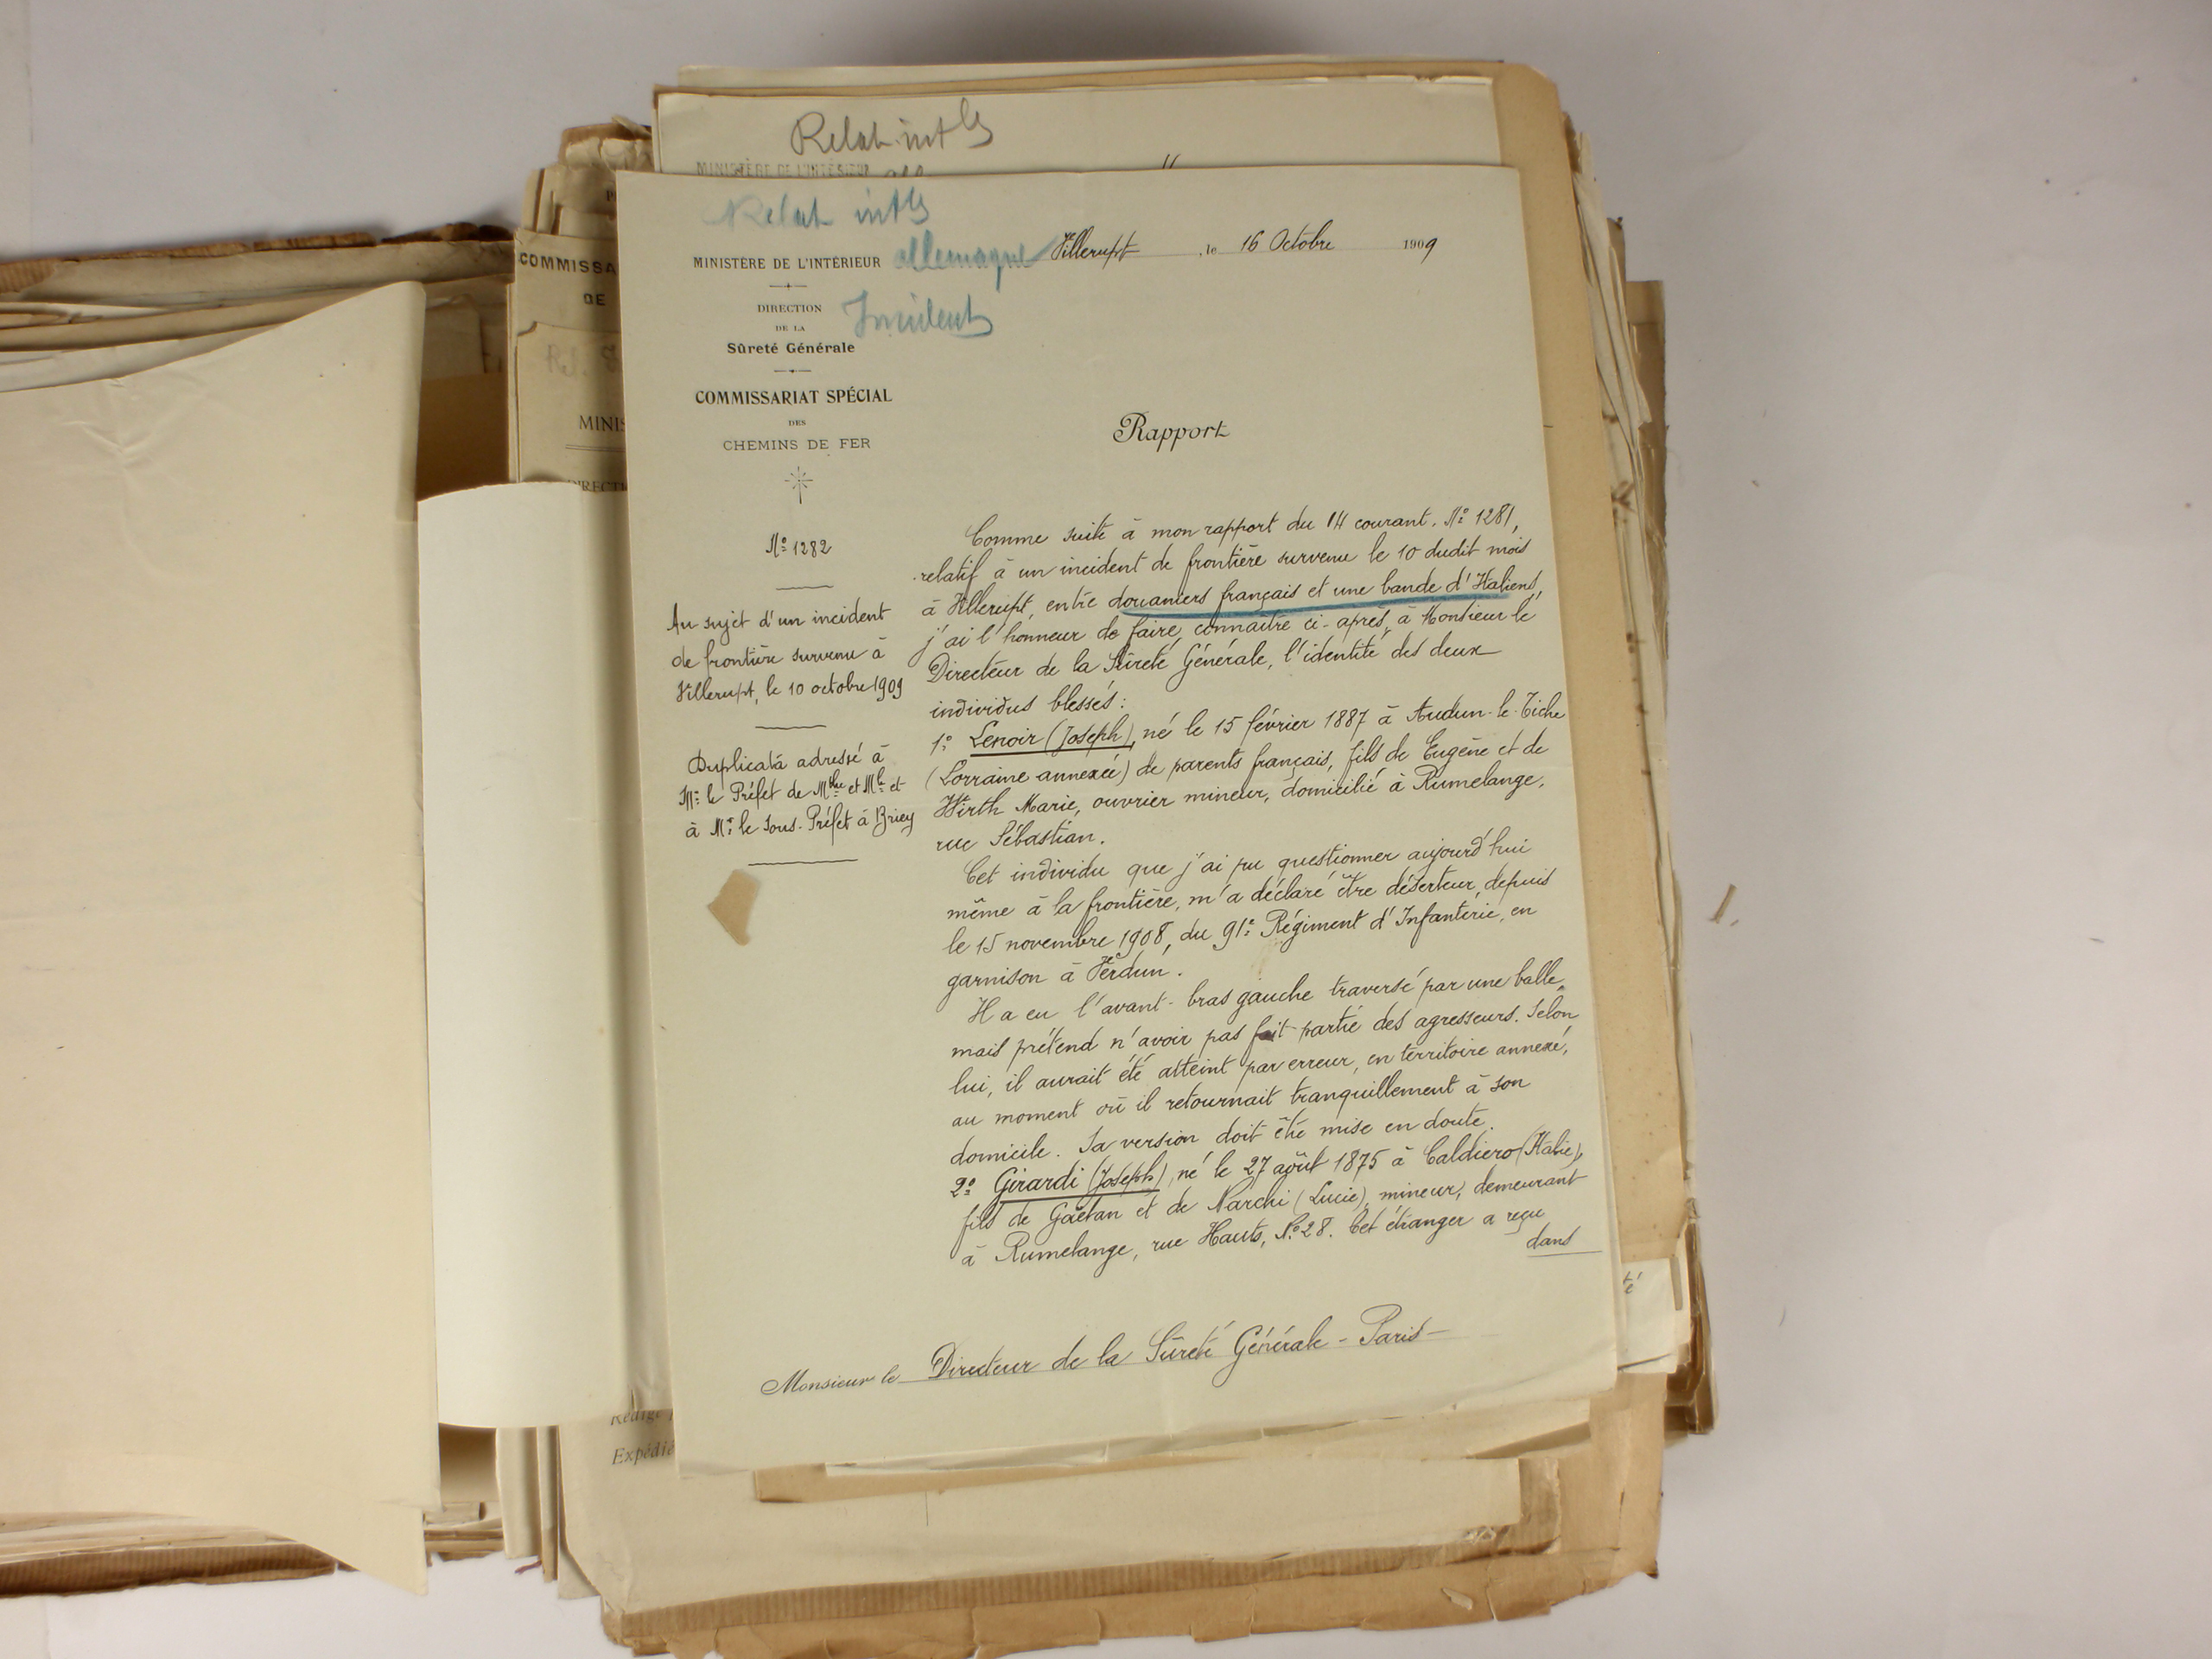 Relat. intles
MINISTÈRE DE L'INTÉRIEUR
Relat intles
allemagne
Incident
MINISTÈRE DE L'INTÉRIEUR
DIRECTION
DE LA
Sûreté Générale
COMMISSARIAT SPÉCIAL
DES
CHEMINS DE FER
Nº 1282
Au sujet d'un incident
de frontière survenu à
Villerupt, le 10 octobre 1909
Duplicata adressé à
Mr le Préfet de Mthe et Mlle et
à Mr le Sous-Préfet à Briey
Villerupt, le 16 Octobre 1909
Rapport
Comme suite à mon rapport du 14 courant. Nº 1281,
relatif à un incident de frontière survenu le 10 dudit mois
à Villerupt, entre douaniers français et une bande d'Italiens,
j'ai l'honneur de faire connaître ci-après, à Monsieur le
Directeur de la Sûreté Générale, l'identité des deux
individus blessés :
1º Lenoir (Joseph), né le 15 février 1887 à Audun-le-Tiche
(Lorraine annexée) de parents français, fils de Eugène et de
Wirth Marie, ouvrier mineur, domicilié à Rumelange,
rue Sébastian.
Cet individu que j'ai pu questionner aujourd'hui
même à la frontière, m'a déclaré être déserteur, depuis
le 15 novembre 1908, du 91e Régiment d'Infanterie, en
garnison à Verdun.
Il a eu l'avant-bras gauche traversé par une balle,
mais prétend n'avoir pas fait partie des agresseurs. Selon
lui, il aurait été atteint par erreur, en territoire annexé,
au moment où il retournait tranquillement à son
domicile. Sa version doit être mise en doute.
2º Girardi (Joseph), né le 27 août 1875 à Caldiero (Italie),
fils de Gaëtan et de Narchi (Lucie), mineur, demeurant
à Rumelange, rue Hauts, Nº 28. Cet étranger a reçu
dans
Monsieur le Directeur de la Sûreté Générale - Paris -
COMMISSA
DE
MINIS
DIRECTI
Rédigé
Expédié
té